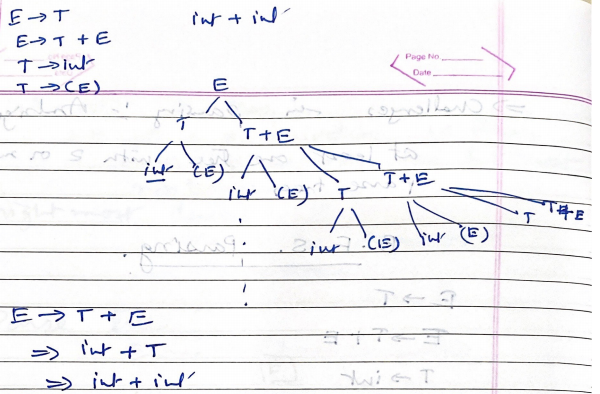 E → T int + int
E → T + E
T → int
T → (E)
Page No
Date
E
T T + E
int (E) int (E) T T + E
int (E) int (E) T T + E
E → T + E
⇒ int + T
⇒ int + int